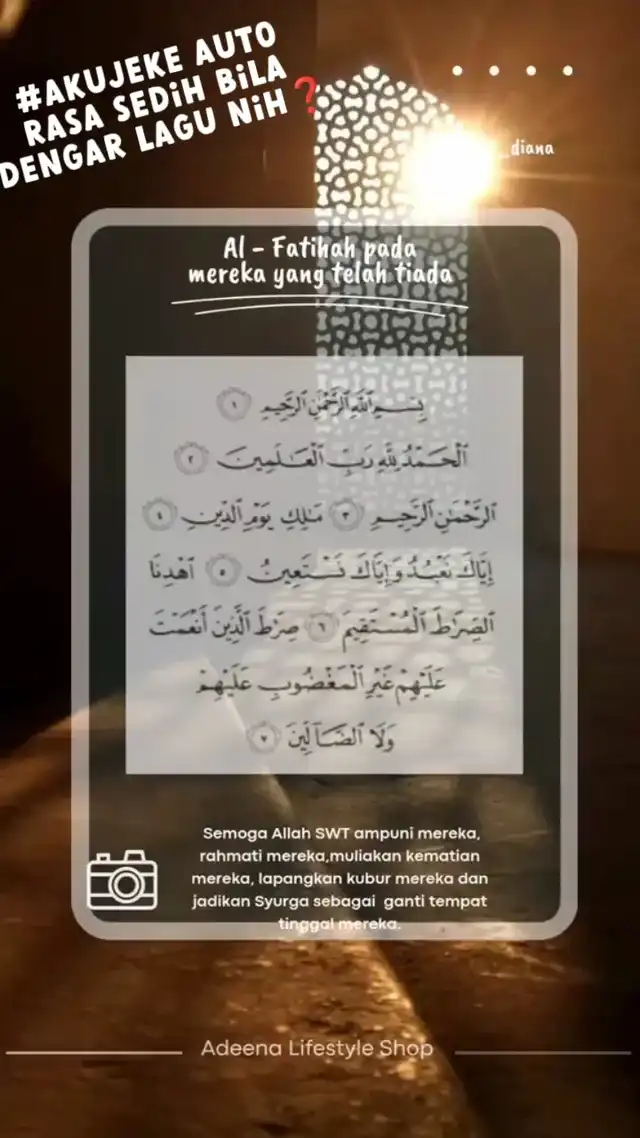 #AKUJEKE AUTO
RASA SEDiH BiLA
DENGAR LAGU NiH❓
_diana
Al - Fatihah pada
mereka yang telah tiada
بِسْمِ ٱللَّهِ ٱلرَّحْمَٰنِ ٱلرَّحِيمِ ١
ٱلْحَمْدُ لِلَّهِ رَبِّ ٱلْعَٰلَمِينَ ٢
ٱلرَّحْمَٰنِ ٱلرَّحِيمِ ٣ مَٰلِكِ يَوْمِ ٱلدِّينِ ٤
إِيَّاكَ نَعْبُدُ وَإِيَّاكَ نَسْتَعِينُ ٥ ٱهْدِنَا
ٱلصِّرَٰطَ ٱلْمُسْتَقِيمَ ٦ صِرَٰطَ ٱلَّذِينَ أَنْعَمْتَ
عَلَيْهِمْ غَيْرِ ٱلْمَغْضُوبِ عَلَيْهِمْ
وَلَا ٱلضَّآلِّينَ ٧
Semoga Allah SWT ampuni mereka,
rahmati mereka,muliakan kematian
mereka, lapangkan kubur mereka dan
jadikan Syurga sebagai ganti tempat
tinggal mereka.
Adeena Lifestyle Shop